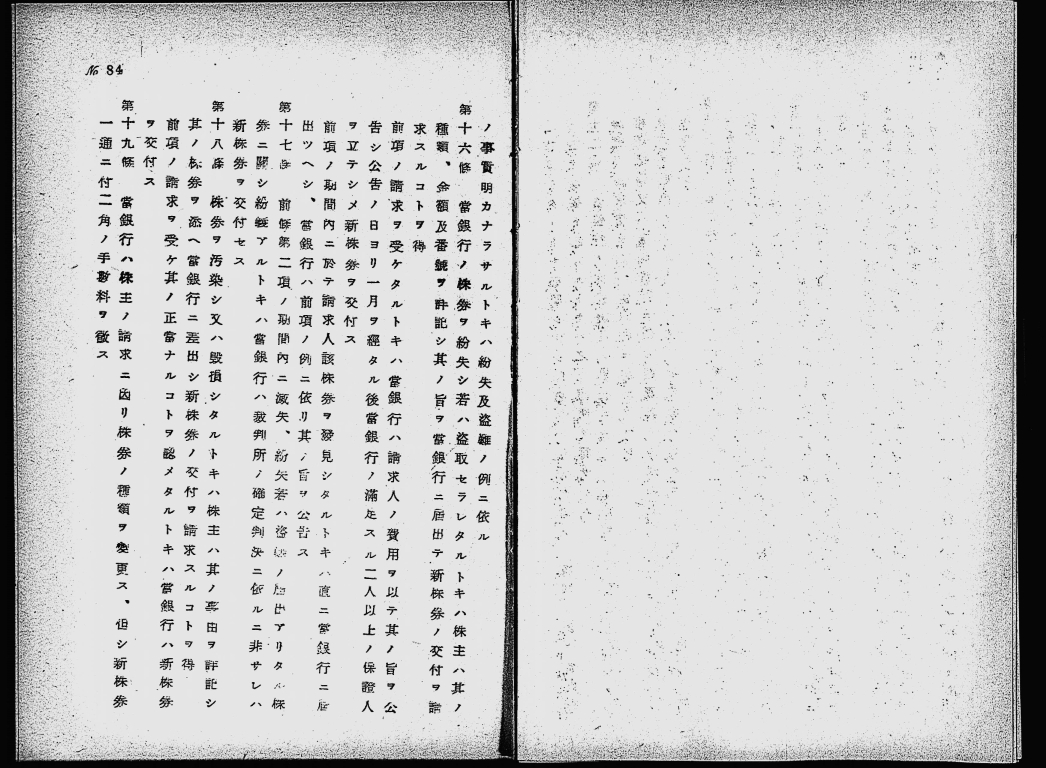 No 84
ノ事實明カナラサルトキハ紛失及盜難ノ例ニ依ル
第十六條　當銀行ノ株券ヲ紛失シ若ハ盜取セラレタルトキハ株主ハ其ノ
種類、金額及番號ヲ詳記シ其ノ旨ヲ當銀行ニ屆出テ新株券ノ交付ヲ請
求スルコトヲ得
前項ノ請求ヲ受ケタルトキハ當銀行ハ請求人ノ費用ヲ以テ其ノ旨ヲ公
告シ公告ノ日ヨリ一月ヲ經タル後當銀行ノ滿足スル二人以上ノ保證人
ヲ立テシメ新株券ヲ交付ス
前項ノ期間內ニ於テ請求人該株券ヲ發見シタルトキハ直ニ當銀行ニ屆
出ツヘシ、當銀行ハ前項ノ例ニ依リ其ノ旨ヲ公告ス
第十七條　前條第二項ノ期間內ニ滅失、紛失若ハ盜難ノ屆出アリタル株
券ニ關シ紛議アルトキハ當銀行ハ裁判所ノ確定判決ニ依ルニ非サレハ
新株券ヲ交付セス
第十八條　株券ヲ汚染シ又ハ毀損シタルトキハ株主ハ其ノ事由ヲ詳記シ
其ノ株券ヲ添ヘ當銀行ニ差出シ新株券ノ交付ヲ請求スルコトヲ得
前項ノ請求ヲ受ケ其ノ正當ナルコトヲ認メタルトキハ當銀行ハ新株券
ヲ交付ス
第十九條　當銀行ハ株主ノ請求ニ因リ株券ノ種類ヲ變更ス、但シ新株券
一通ニ付二角ノ手數料ヲ徵ス